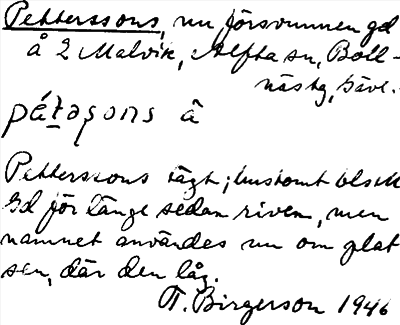 Petterssons, nu försvunnen gd
å 2 Malvik, Alfta sn, Boll-
näs tg, Gävl.
pátǝsons å
Petterssons sägt; bustomt
Gd för länge sedan riven, men
namnet användes nu om plat
sen, där den låg.
T. Birgerson 1946